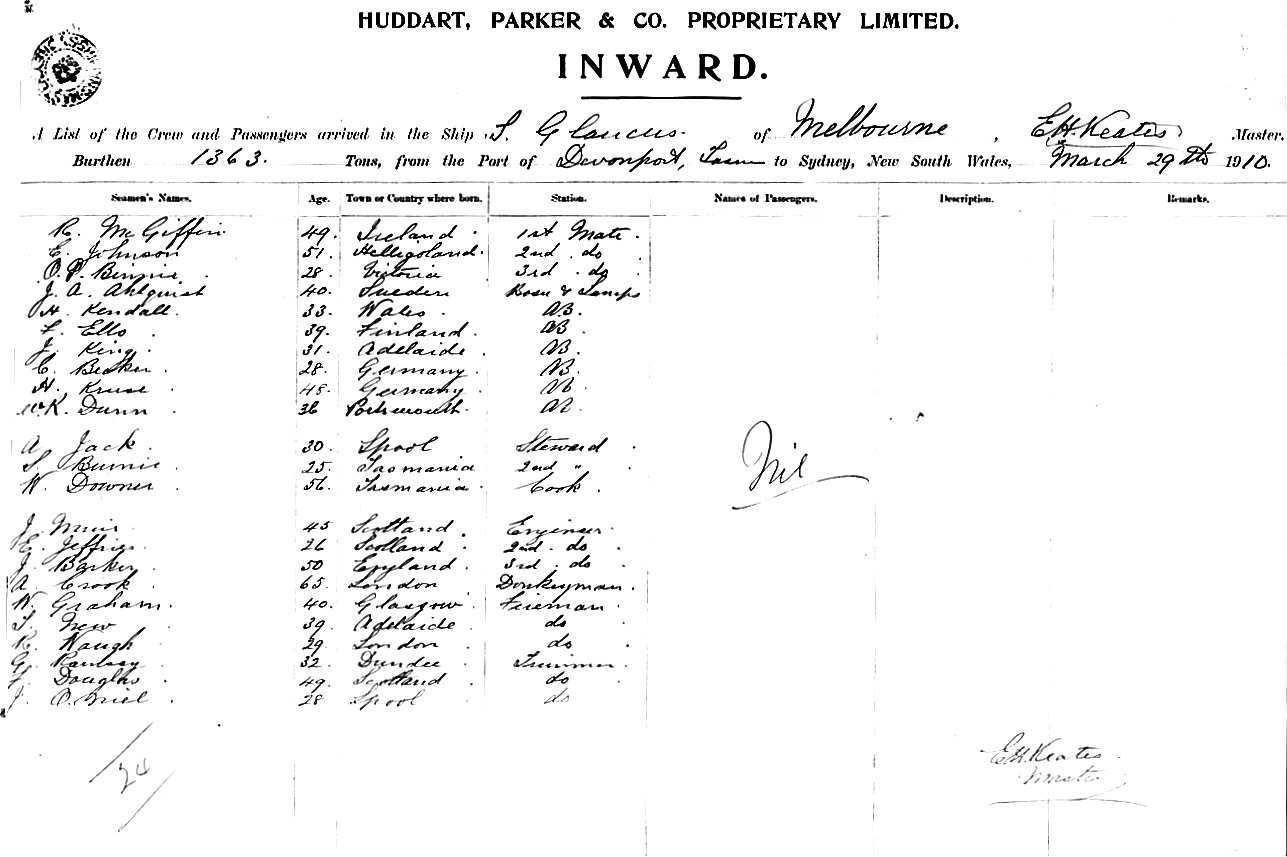 HUDDART, PARKER & CO. PROPRIETARY LIMITED.
INWARD.
A List of the Crew and Passengers arrived in the Ship S. Glaucus. of Melbourne, E.H. Keates, Master.
Burthen 1363. Tons, from the Port of Devonport, Tasm to Sydney, New South Wales, March 29th 1910.
Seamen's Names. Age. Town or Country where born. Station. Names of Passengers. Description. Remarks.
R. McGiffin 49. Ireland. 1st Mate.
E. Johnson 51. Helligoland. 2nd do
O. P. Binnie 28. Victoria 3rd do
J. A. Ahlquist 40. Sueden Bosn & Lamps
H. Kendall. 33. Wales. AB.
F. Ello 39. Finland. AB
J. King. 31. Adelaide. AB.
C. Becker. 28. Germany. AB.
H. Kruse 48. Germany. AB
W.K. Dunn 36 Portsmouth. AB
A. Jack. 30. Spool Steward
S. Burnie 25. Tasmania 2nd "
W. Downer 56. Tasmania. Cook.
Nil
J. Muir 45 Scotland. Engineer.
E. Jeffries. 26 Scotland. 2nd. do
J. Barker 50 England. 3rd. do
A. Crook 65. London Donkeyman.
W. Graham. 40. Glasgow. Fireman.
T. New 39. Adelaide. do
R. Waugh 29. London. do
G. Ramsay 32. Dundee Trimmer.
F. Douglas 49. Scotland do
J. O.Niel 28 Spool do
24
E.H. Keates.
Master